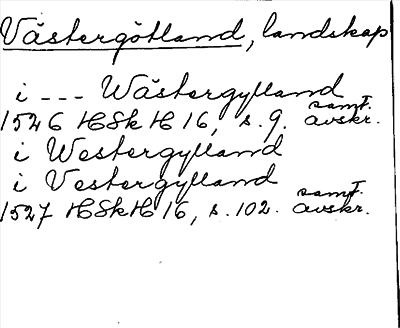 Västergötland, landskap
i --- Wästergylland
1526 HSkH 16, s. 9. samt. avskr.
i Westergylland
i Vestergylland
1527 HSkH 16, s. 102. samt. avskr.